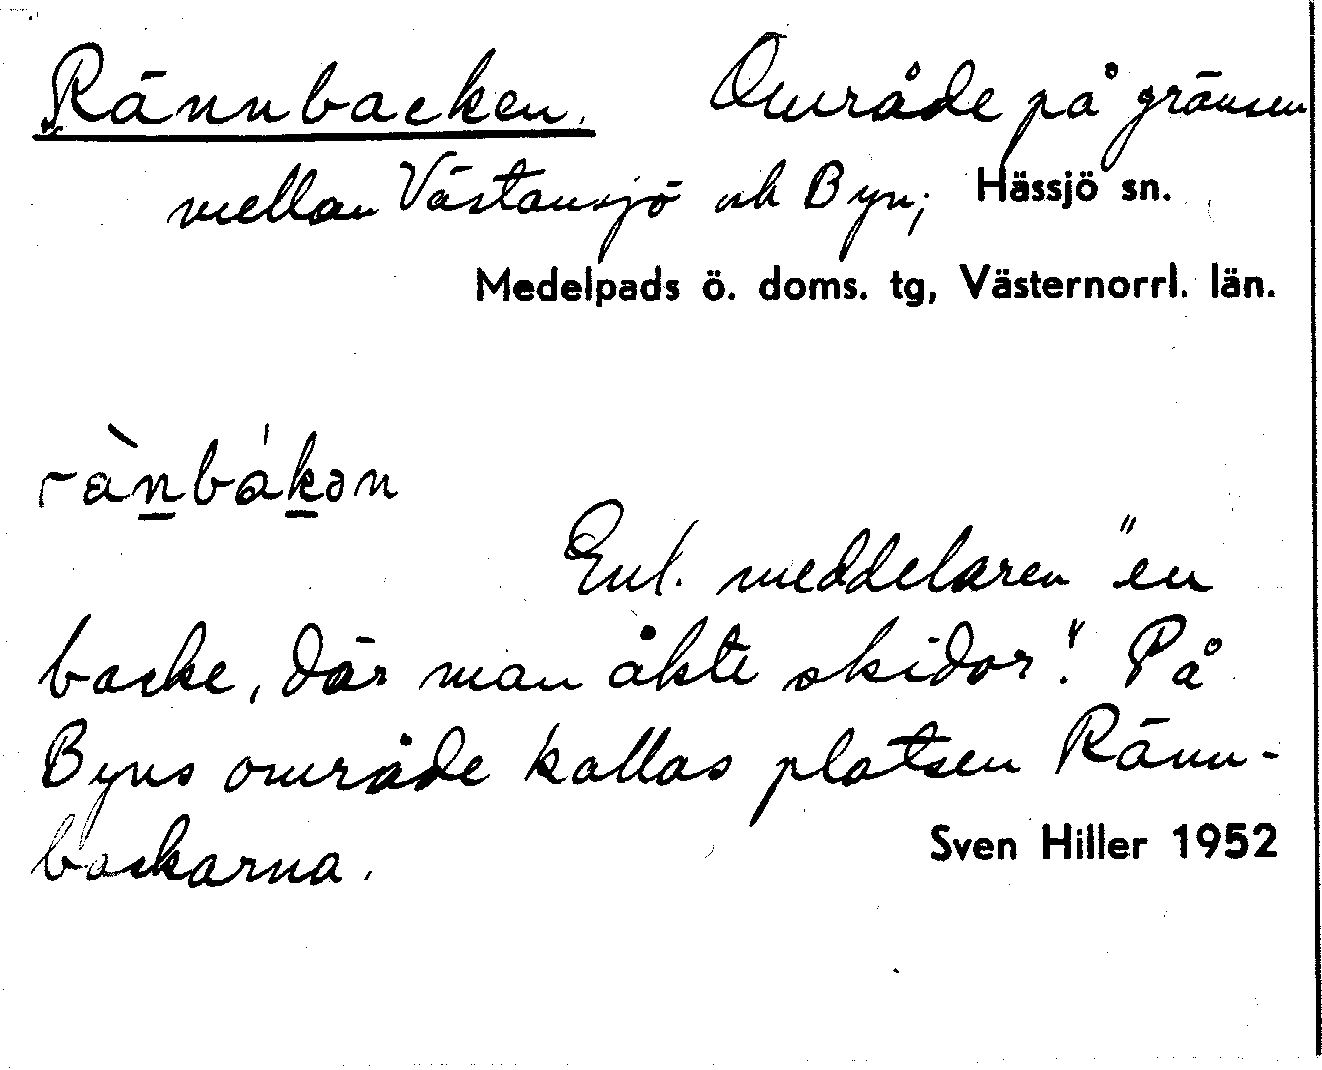 Rännbacken. Område på gränsen
mellan Västansjö och Byn; Hässjö sn.
Medelpads ö. doms. tg, Västernorrl. län.
rànbákən
Enl. meddelaren "en
backe, där man åkte skidor". På
Byns område kallas platsen Ränn-
backarna.
Sven Hiller 1952